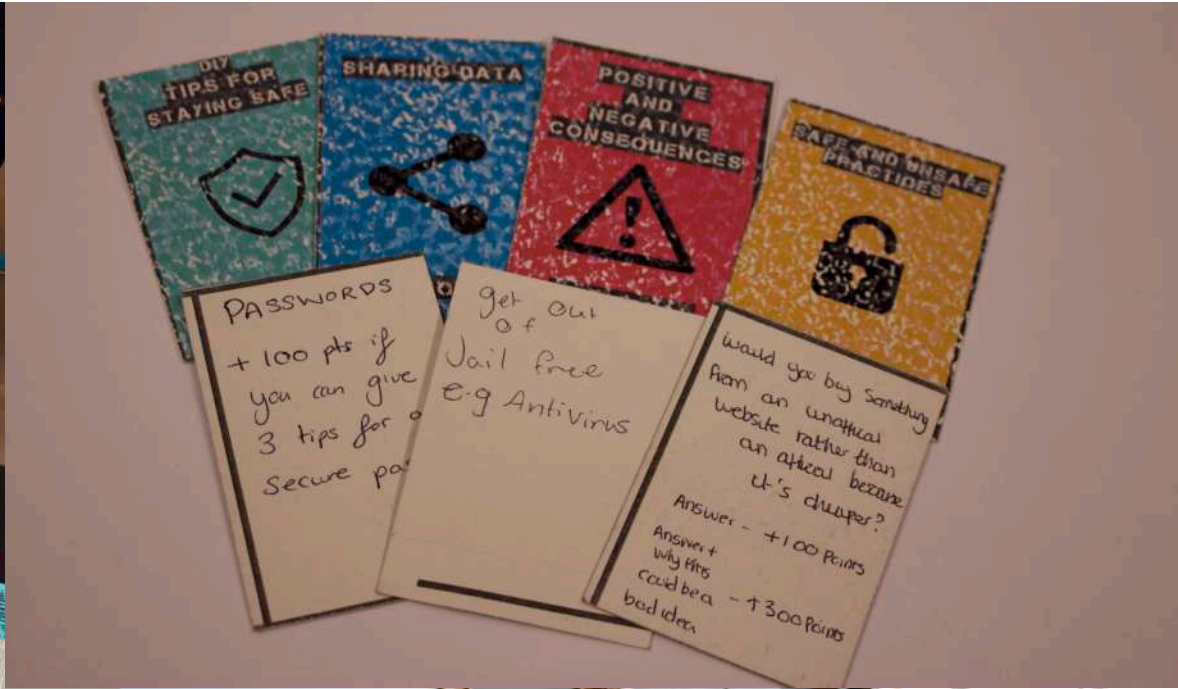 DIY
TIPS FOR
STAYING SAFE
SHARING DATA
POSITIVE
AND
NEGATIVE
CONSEQUENCES
SAFE AND UNSAFE
PRACTICES
PASSWORDS
+ 100 pts if
you can give
3 tips for
secure
get out
of
Jail free
e.g Antivirus
would you buy something
from an
website rather than
an because
it's cheaper?
Answer - +100 Points
Answer +
why this
could be a - +300 Points
bad idea